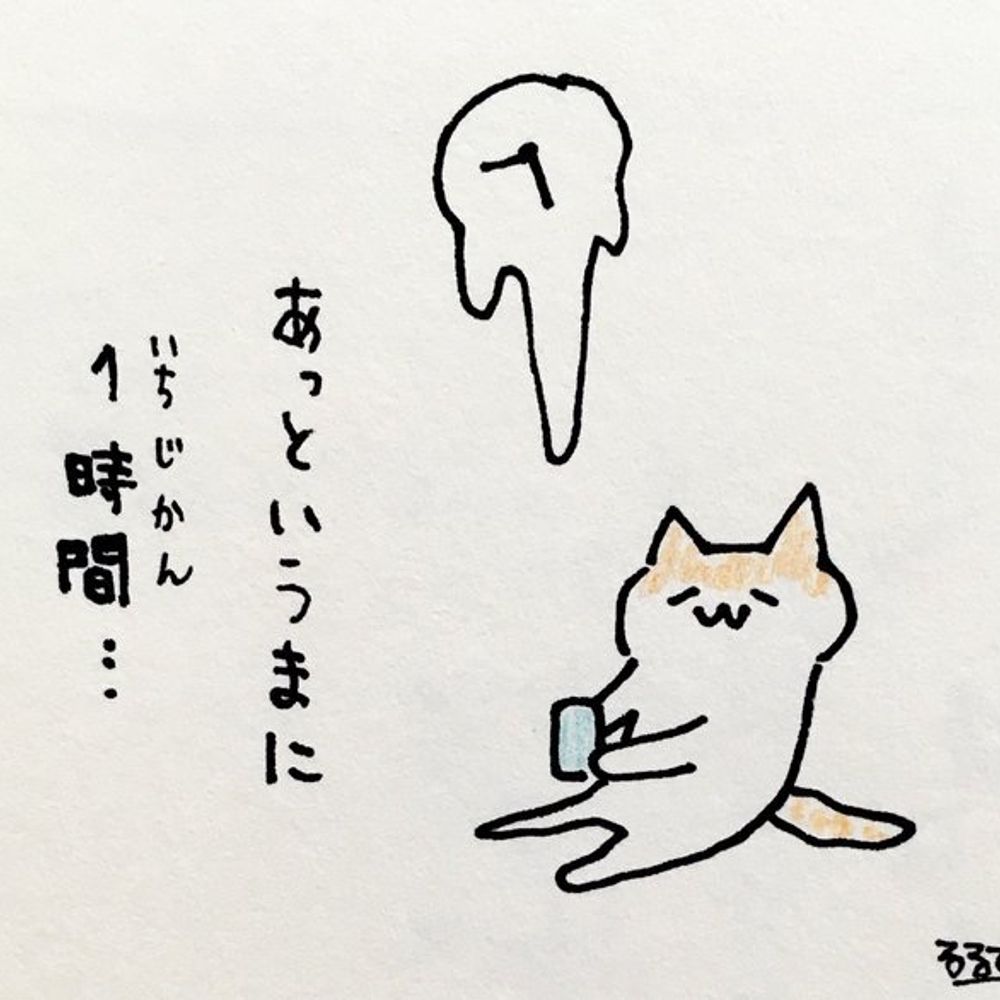 あっというまに
1時間…
いちじかん